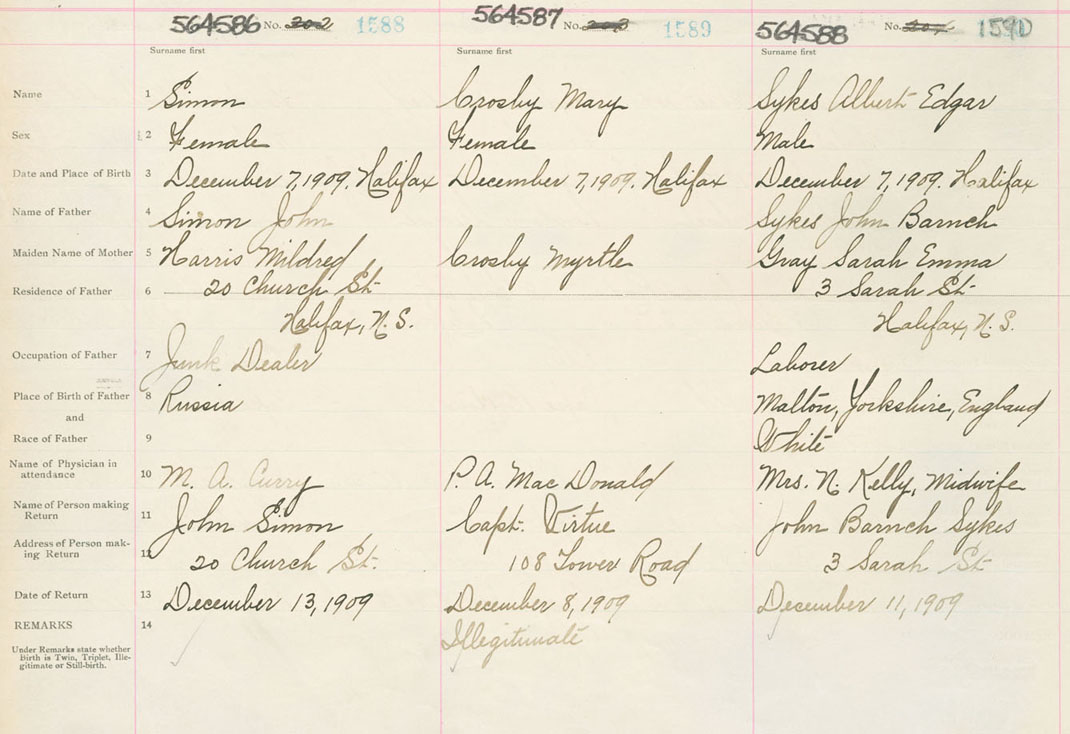 564586 No. 202 1588 564587 No. 203 1589 564588 No. 1590
Surname first Surname first Surname first
Name 1 Simon Crosby Mary Sykes Albert Edgar
Sex 2 Female Female Male
Date and Place of Birth 3 December 7, 1909. Halifax December 7, 1909. Halifax December 7, 1909. Halifax
Name of Father 4 Simon John Sykes John Barnch
Maiden Name of Mother 5 Harris Mildred Crosby Myrtle Gray Sarah Emma
Residence of Father 6 20 Church St. 3 Sarah St.
Halifax, N.S. Halifax, N.S.
Occupation of Father 7 Junk Dealer Laborer
Place of Birth of Father 8 Russia Malton, Yorkshire, England
and
Race of Father 9 White
Name of Physician in
attendance 10 M. A. Curry P. A. MacDonald Mrs. N. Kelly, Midwife
Name of Person making
Return 11 John Simon Capt. Virtue John Barnch Sykes
Address of Person mak-
ing Return 12 20 Church St. 108 Tower Road 3 Sarah St.
Date of Return 13 December 13, 1909 December 8, 1909 December 11, 1909
REMARKS 14 Illegitimate
Under Remarks state whether
Birth is Twin, Triplet, Ille-
gitimate or Still-birth.